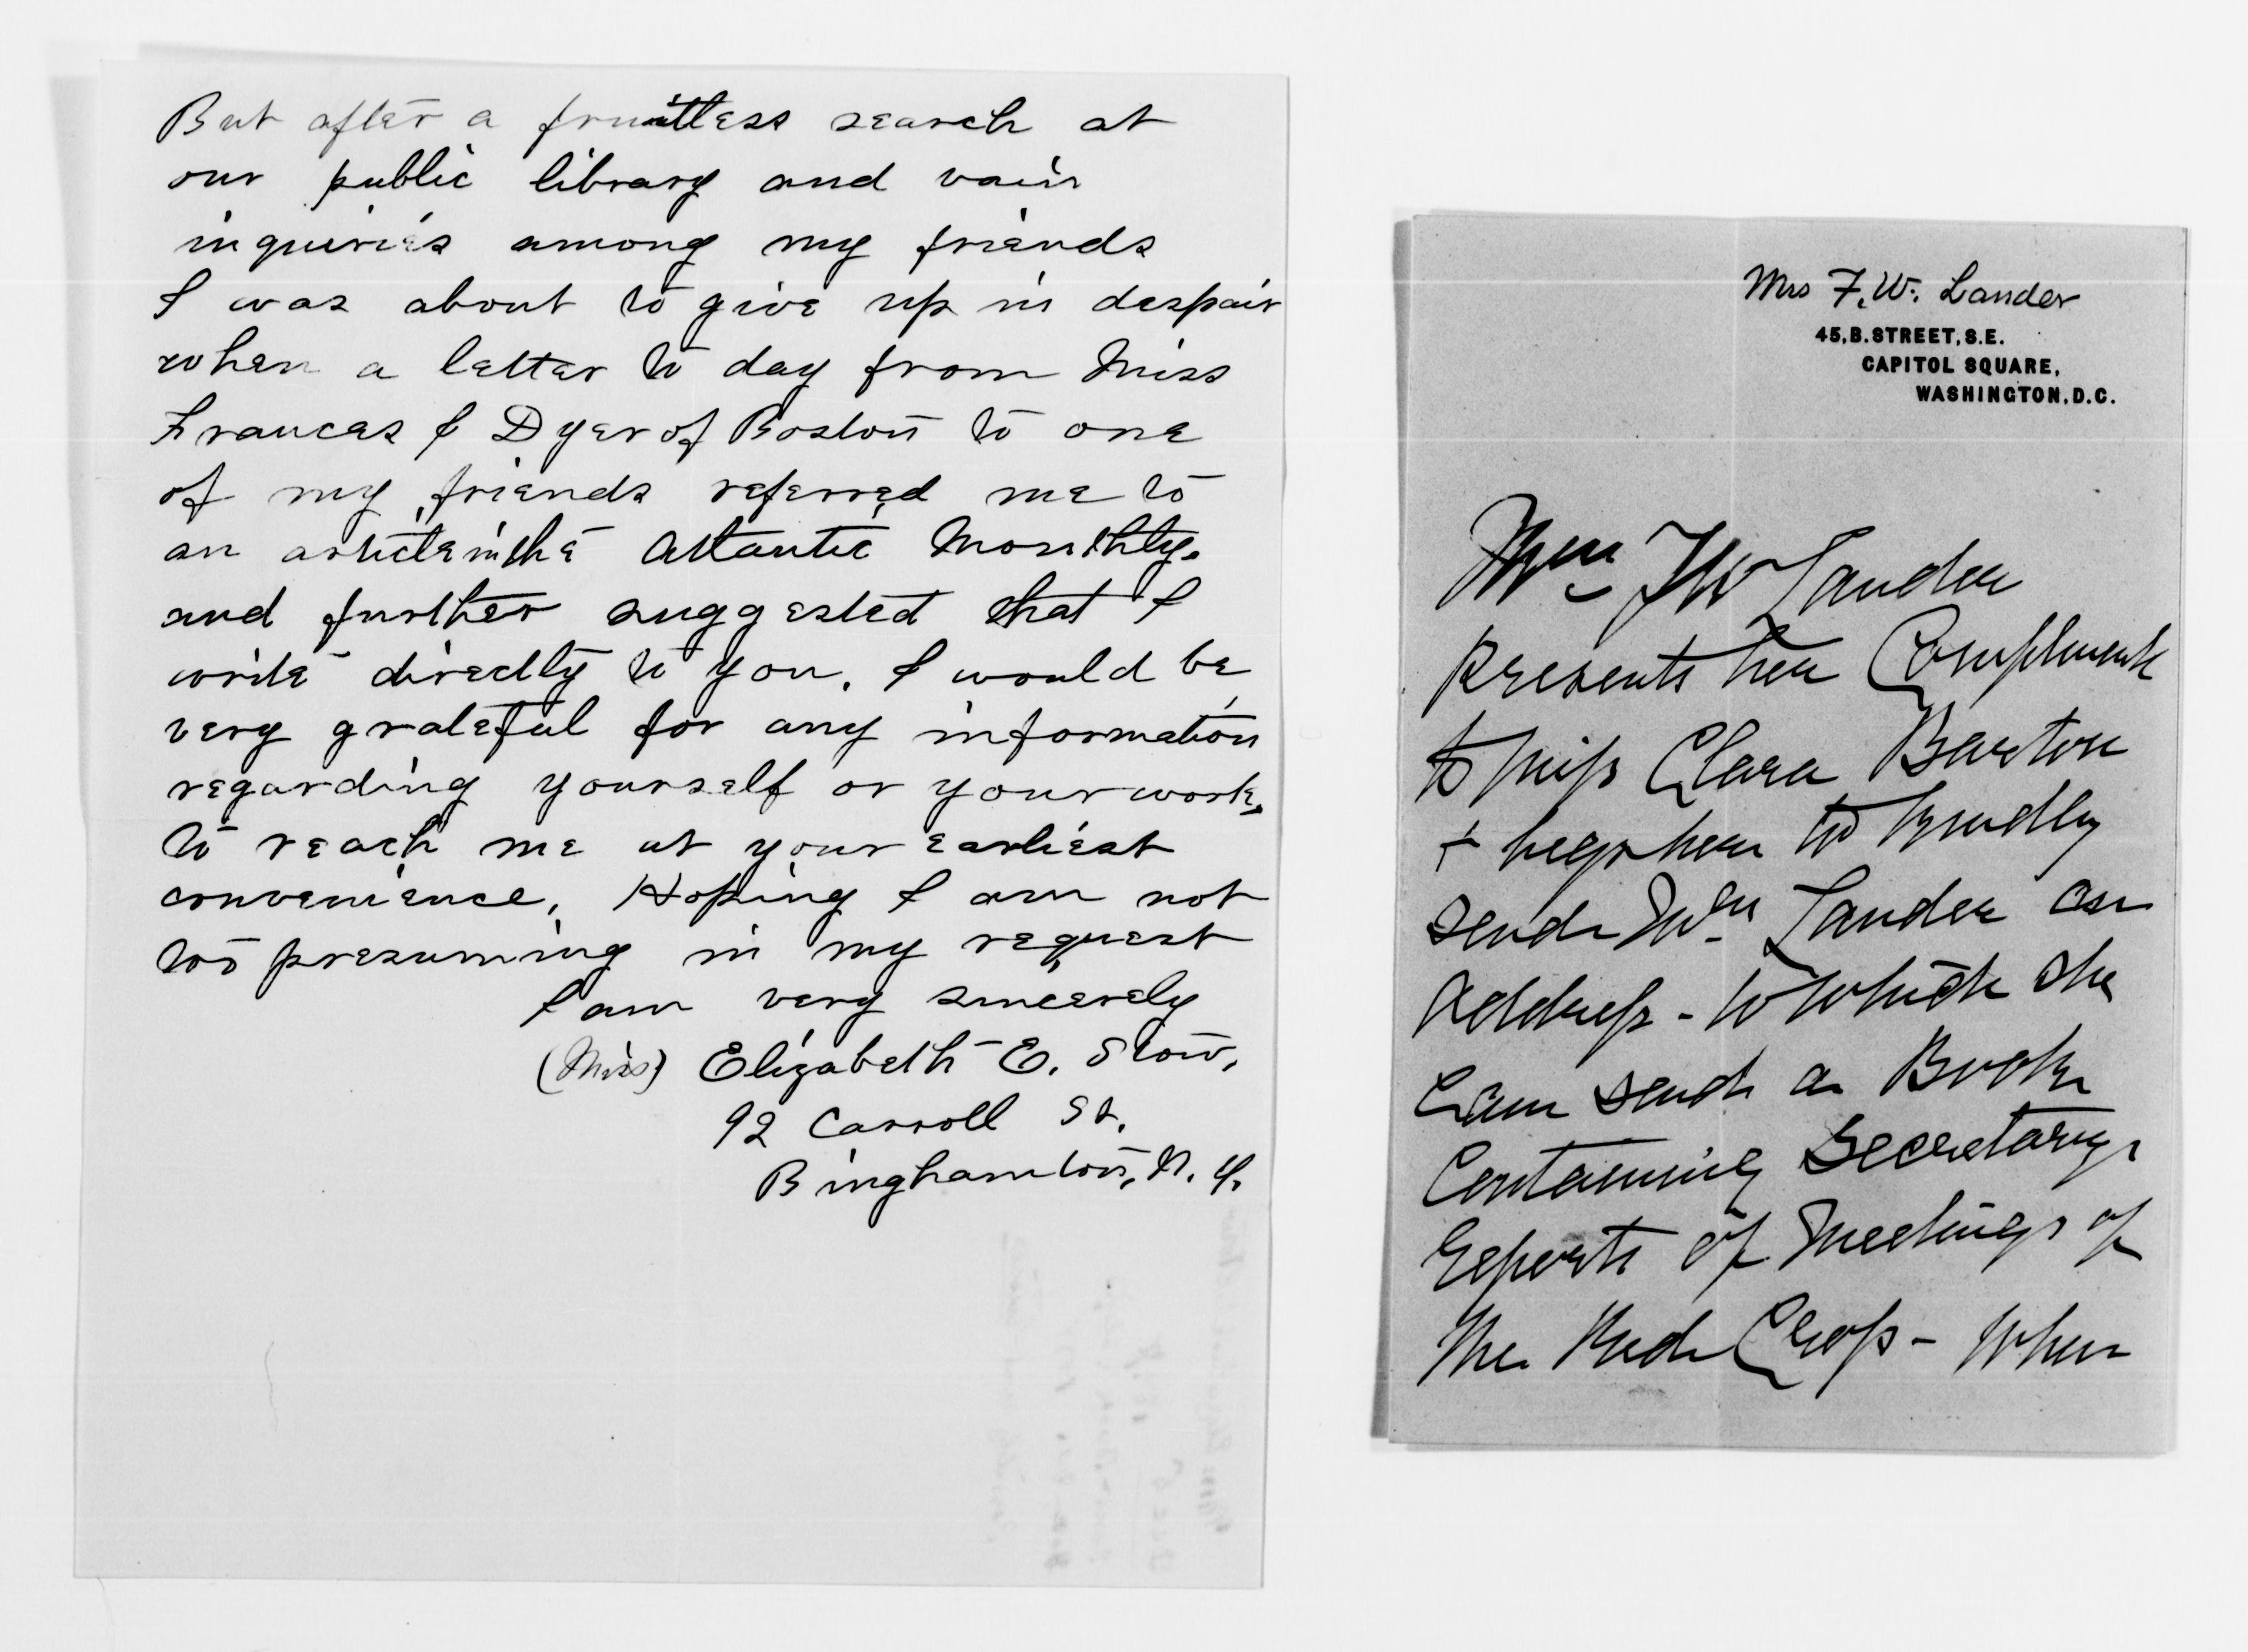 But after a fruitless search at
our public library and vain
inquiries among my friends
I was about to give up in despair
when a letter to day from Miss
Frances J Dyer of Boston to one
of my friends referred me to
an article in the Atlantic Monthly.
and further suggested that I
write directly to you. I would be
very grateful for any information
regarding yourself or your work,
to reach me at your earliest
convenience. Hoping I am not
too presuming in my request
I am very sincerely
(Miss) Elizabeth E. Stow,
92 Carroll St.
Binghamton, N. Y.
Mrs F. W. Lander
45, B. STREET, S.E.
CAPITOL SQUARE,
WASHINGTON, D.C.
Mrs FW Lander
Presents her Compliments
to Miss Clara Barton
+ begs her to kindly
send Mrs Lander an
Address - to which she
Can send a Book
Containing Secretarys
reports of Meetings of
the Red Cross - When